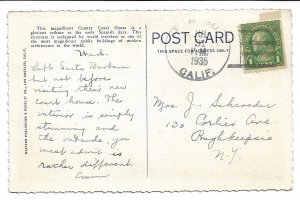 This magnificent County Court House is a
glorious tribute to the early Spanish days. This
structure is acclaimed by world travelers as one of
the most magnificent public buildings of modern
architecture in the world.
Wed.
Left Santa Barbara
but not before
visiting their new
court house. The
interior is simply
stunning and
the outside, you
must admit is
rather different.
POST CARD
THIS SPACE FOR ADDRESS ONLY
1936
CALIF.
Mrs. J. Schroeder
130 Corlies Ave
Poughkeepsie
N-Y.